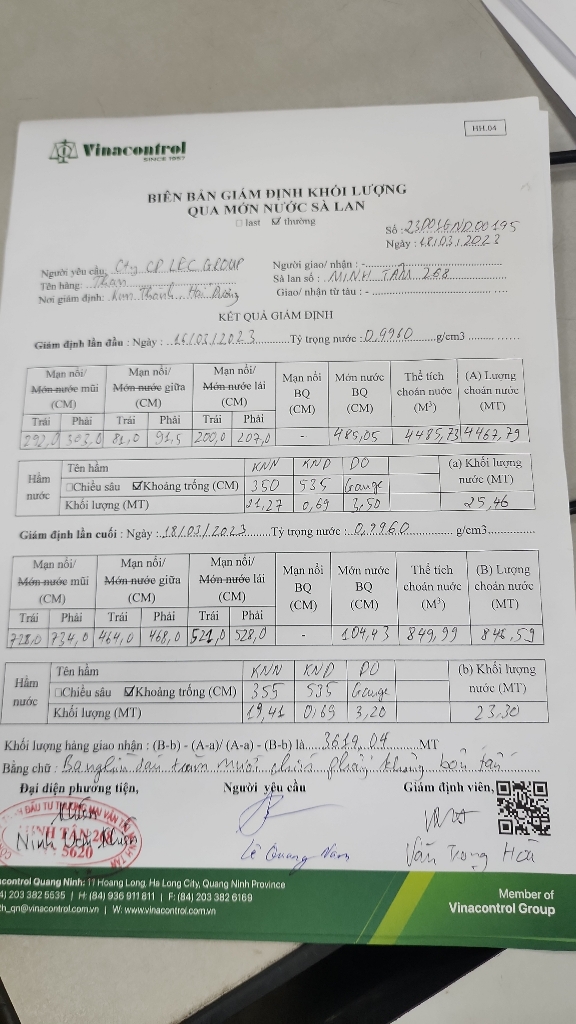 HH.04
Vinacontrol
SINCE 1957
BIÊN BẢN GIÁM ĐỊNH KHỐI LƯỢNG
QUA MỚN NƯỚC SÀ LAN
☐ last ☑ thường
Số : 23D01GND00195
Ngày : 18/03/2023
Người yêu cầu: Cty CP LEC GROUP
Người giao/ nhận : -
Tên hàng: Than
Sà lan số : MINH TÂM 268
Nơi giám định: Kim Thành, Hải Dương
Giao/ nhận từ tàu : -
KẾT QUẢ GIÁM ĐỊNH
Giám định lần đầu : Ngày : 16/03/2023 Tỷ trọng nước : 0,9960 g/cm3
Mạn nổi/ Mớn nước mũi (CM) Mạn nổi/ Mớn nước giữa (CM) Mạn nổi/ Mớn nước lái (CM) Mạn nổi BQ (CM) Mớn nước BQ (CM) Thể tích choán nước (M³) (A) Lượng choán nước (MT)
Trái Phải Trái Phải Trái Phải
292,0 303,0 81,0 91,5 200,0 207,0 - 485,05 4485,73 4467,79
Hầm nước Tên hầm KNN KND DO (a) Khối lượng nước (MT)
☐Chiều sâu ☑Khoảng trống (CM) 350 535 Gauge
Khối lượng (MT) 21,27 0,69 3,50 25,46
Giám định lần cuối : Ngày : 18/03/2023 Tỷ trọng nước : 0,9960 g/cm3
Mạn nổi/ Mớn nước mũi (CM) Mạn nổi/ Mớn nước giữa (CM) Mạn nổi/ Mớn nước lái (CM) Mạn nổi BQ (CM) Mớn nước BQ (CM) Thể tích choán nước (M³) (B) Lượng choán nước (MT)
Trái Phải Trái Phải Trái Phải
728,0 734,0 464,0 468,0 521,0 528,0 - 104,43 849,99 846,59
Hầm nước Tên hầm KNN KND DO (b) Khối lượng nước (MT)
☐Chiều sâu ☑Khoảng trống (CM) 355 535 Gauge
Khối lượng (MT) 19,41 0,69 3,20 23,30
Khối lượng hàng giao nhận : (B-b) - (A-a)/ (A-a) - (B-b) là 3619,04 MT
Bằng chữ : Ba nghìn sáu trăm mười chín phẩy không bốn tấn
Đại diện phương tiện, Người yêu cầu Giám định viên,
5620
Lê Quang Nam
Văn Trọng Hoà
control Quang Ninh: 11 Hoang Long, Ha Long City, Quang Ninh Province
4) 203 382 5535 | H: (84) 936 911 811 | F: (84) 203 382 6169
th_qn@vinacontrol.com.vn | W: www.vinacontrol.com.vn
Member of
Vinacontrol Group